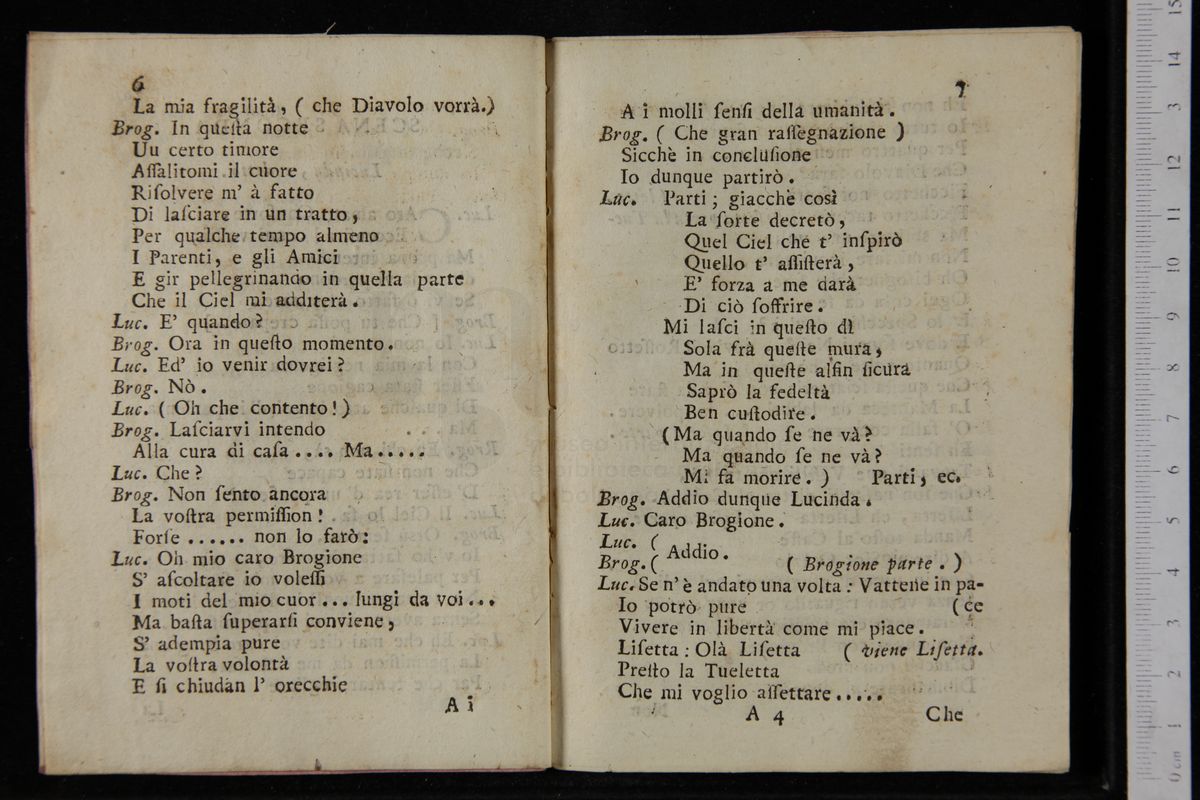 6
La mia fragilità, ( che Diavolo vorrà.)
Brog. In queſta notte
Uu certo timore
Aſſalitomi il cuore
Riſolvere m' à fatto
Di laſciare in un tratto,
Per qualche tempo almeno
I Parenti, e gli Amici
E gir pellegrinando in quella parte
Che il Ciel mi additerà.
Luc. E' quando?
Brog. Ora in queſto momento.
Luc. Ed' io venir dovrei?
Brog. Nò.
Luc. ( Oh che contento!)
Brog. Laſciarvi intendo
Alla cura di caſa.... Ma.....
Luc. Che?
Brog. Non ſento ancora
La voſtra permiſſion!
Forſe ...... non lo farò:
Luc. Oh mio caro Brogione
S' aſcoltare io voleſſi
I moti del mio cuor... lungi da voi...
Ma baſta ſuperarſi conviene,
S' adempia pure
La voſtra volontà
E ſi chiudan l' orecchie
A i
7
A i molli ſenſi della umanità.
Brog. ( Che gran raſſegnazione )
Sicchè in concluſione
Io dunque partirò.
Luc. Parti; giacchè così
La ſorte decretò,
Quel Ciel che t' inſpirò
Quello t' aſſiſterà,
E' forza a me darà
Di ciò ſoffrire.
Mi laſci in queſto dì
Sola frà queſte mura,
Ma in queſte alfin ſicura
Saprò la fedeltà
Ben cuſtodire.
(Ma quando ſe ne và?
Ma quando ſe ne và?
Mi fa morire. ) Parti, ec.
Brog. Addio dunque Lucinda.
Luc. Caro Brogione.
Luc. (
Addio.
Brog. ( ( Brogione parte. )
Luc. Se n' è andato una volta: Vattene in pa-
Io potrò pure (ce
Vivere in libertà come mi piace.
Liſetta: Olà Liſetta ( viene Liſetta.
Preſto la Tueletta
Che mi voglio aſſettare.....
A 4 Che